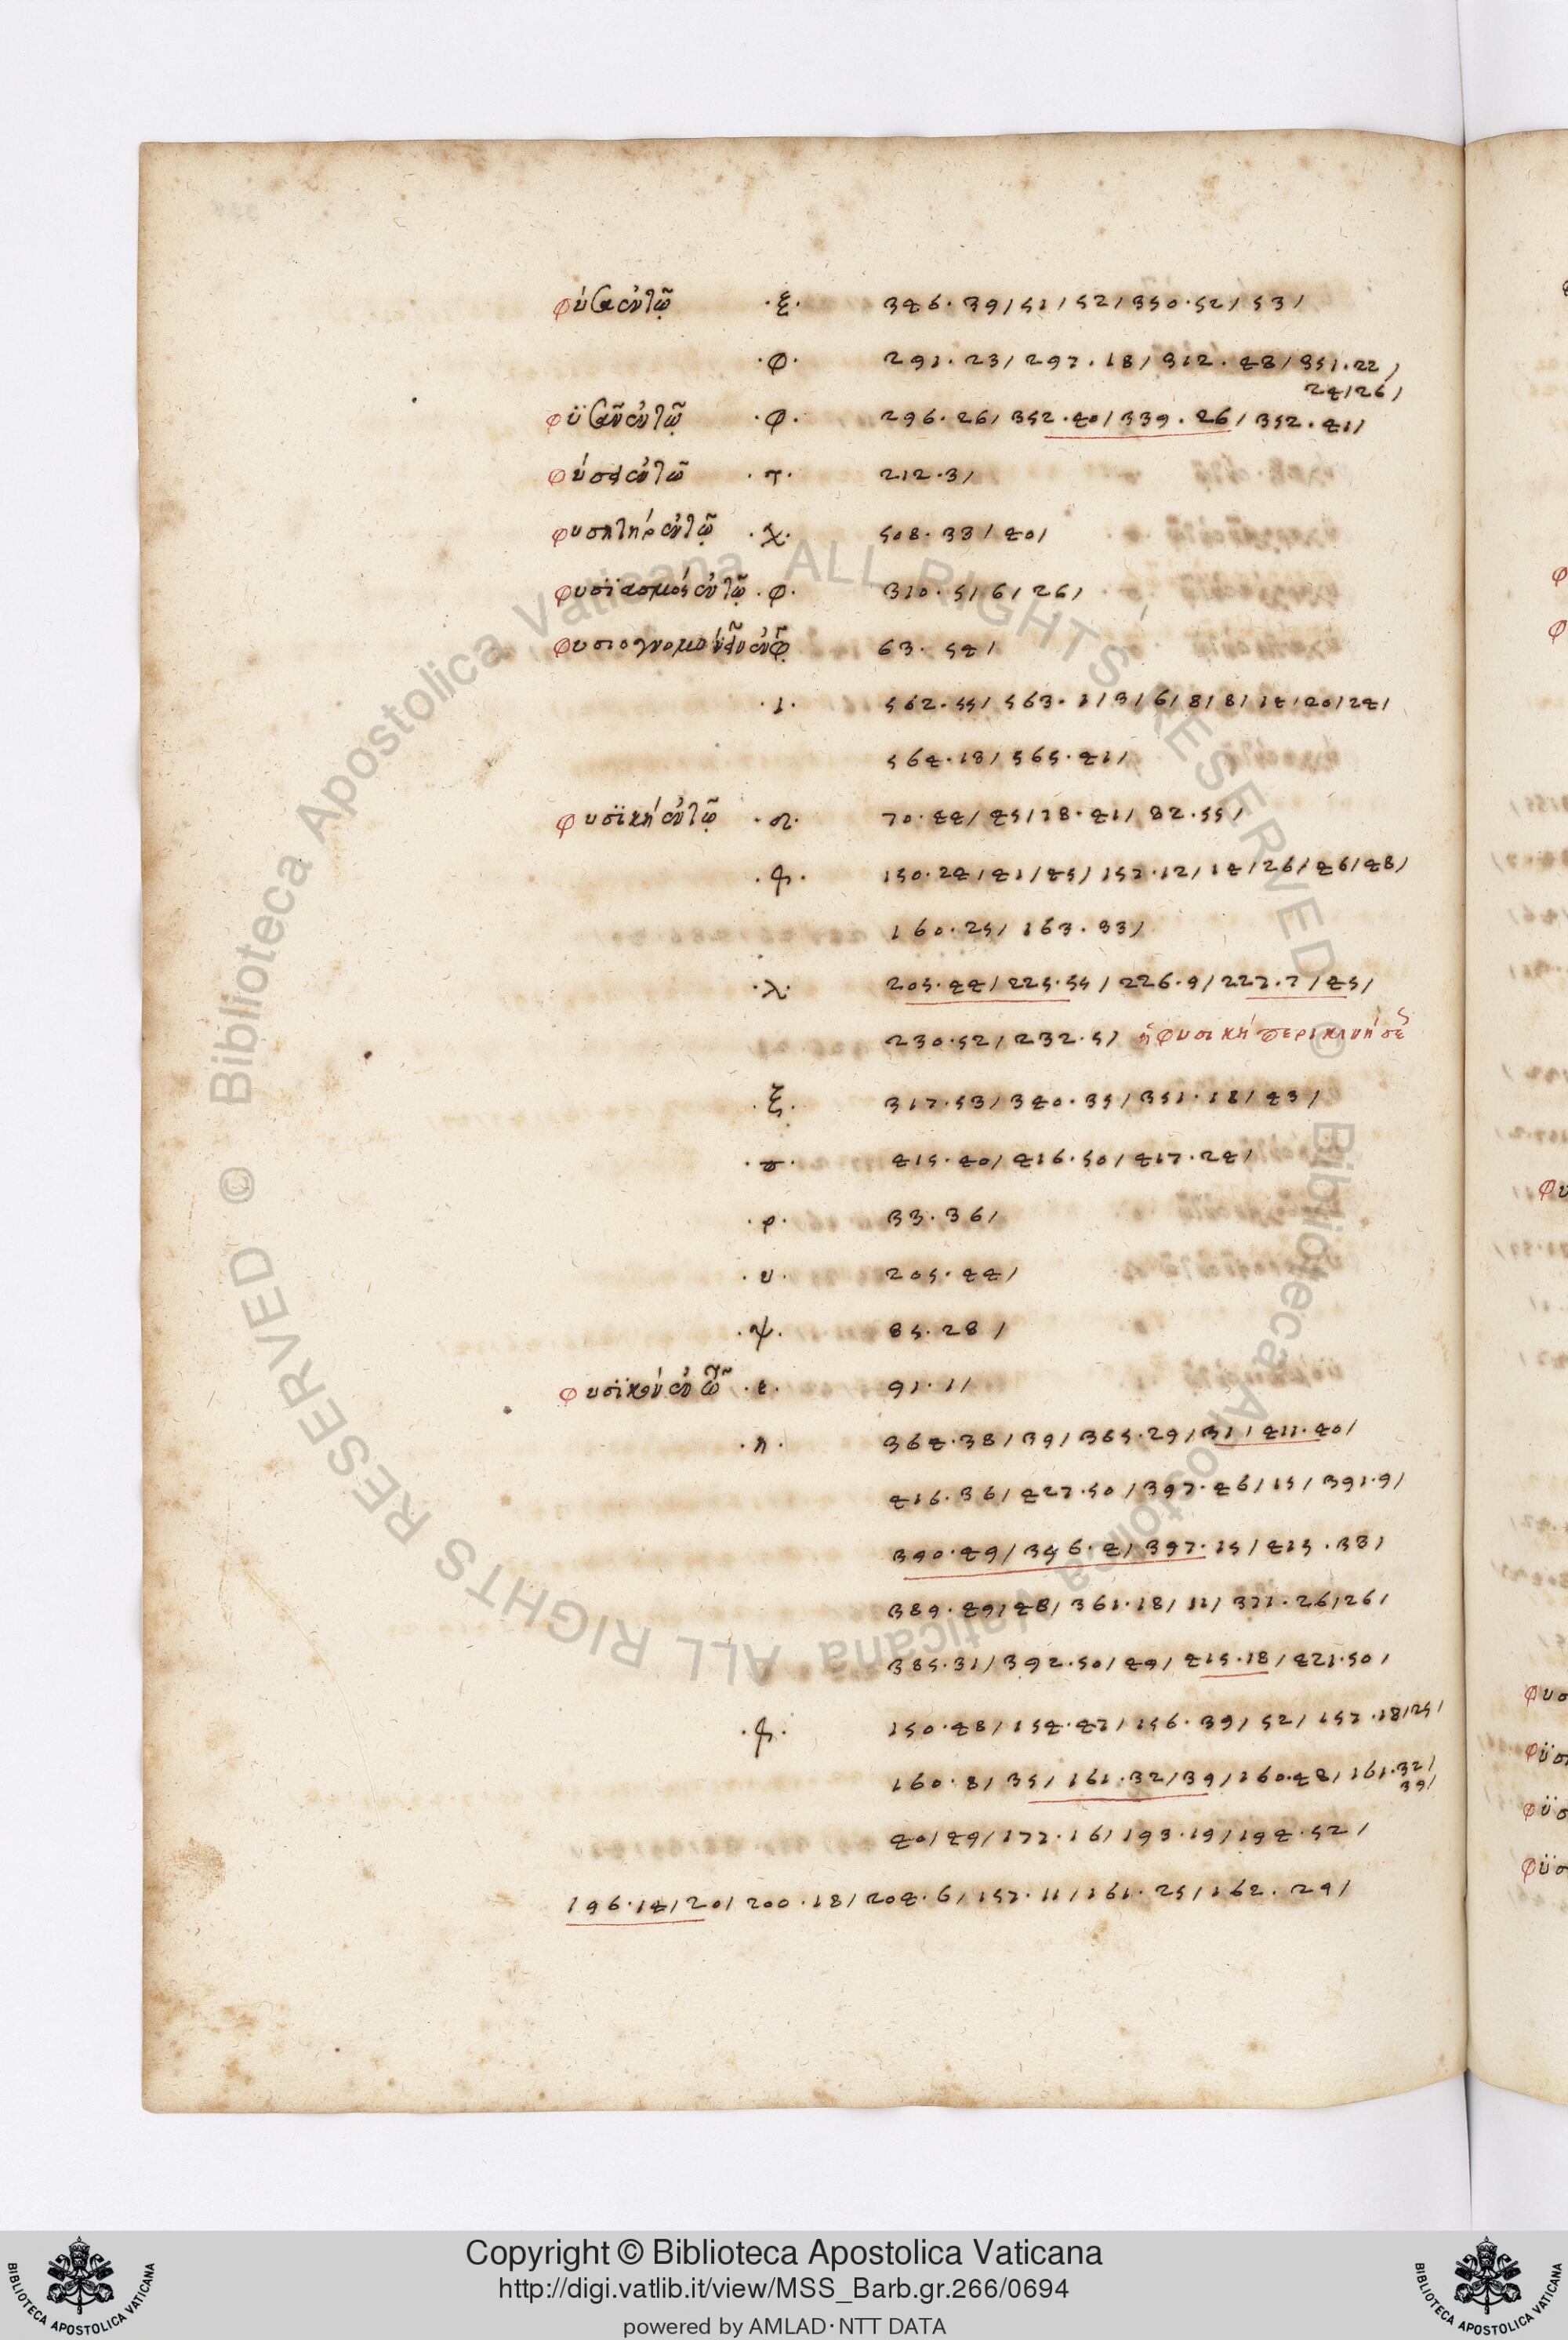 φύσα ἐν τῷ ·ξ· 346·39/51/52/350·52/53/
·φ· 291·23/297·18/312·48/351·22/
24/26/
φϋσᾶν ἐν τῷ ·φ· 296·26/352·40/339·26/352·41/
φύσᾳ ἐν τῷ ·τ· 212·3/
φυσητήρ ἐν τῷ ·χ· 508·33/40/
φυσϊασμός ἐν τῷ ·φ· 310·5/6/26/
63·54/
·ι· 562·55/563·1/3/6/8/8/14/20/24/
564·18/565·41/
φυσϊκή ἐν τῷ 70·44/45/78·41/82·55/
150·24/41/45/157·12/14/26/46/48/
160·25/163·33/
·λ· 205·44/225·55/226·9/227·7/45/
230·52/232·5/ ἡ φυσικὴ περὶ κινήσε
·ξ· 317·53/340·35/351·18/43/
415·40/416·50/417·24/
·ρ· 33·36/
·υ· 205·44/
·ψ· 85·28/
φυσϊκόν ἐν τῷ 91·1/
·η· 364·38/39/365·29/31/411·40/
416·36/427·50/397·46/15/391·9/
390·49/396·4/397·15/415·33/
389·49/48/361·18/11/371·26/26/
385·31/392·50/49/415·18/421·50/
150·48/154·47/156·39/52/157·18/25/
160·8/35/161·32/39/160·48/161·32/
39/
40/49/177·16/193·19/194·52/
196·14/20/200·18/204·6/157·11/161·25/162·29/
Copyright © Biblioteca Apostolica Vaticana
http://digi.vatlib.it/view/MSS_Barb.gr.266/0694
powered by AMLAD·NTT DATA
© Biblioteca Apostolica Vaticana ALL RIGHTS RESERVED © Biblioteca Apostolica Vaticana ALL RIGHTS RESERVED
BIBLIOTECA APOSTOLICA VATICANA
BIBLIOTECA APOSTOLICA VATICANA